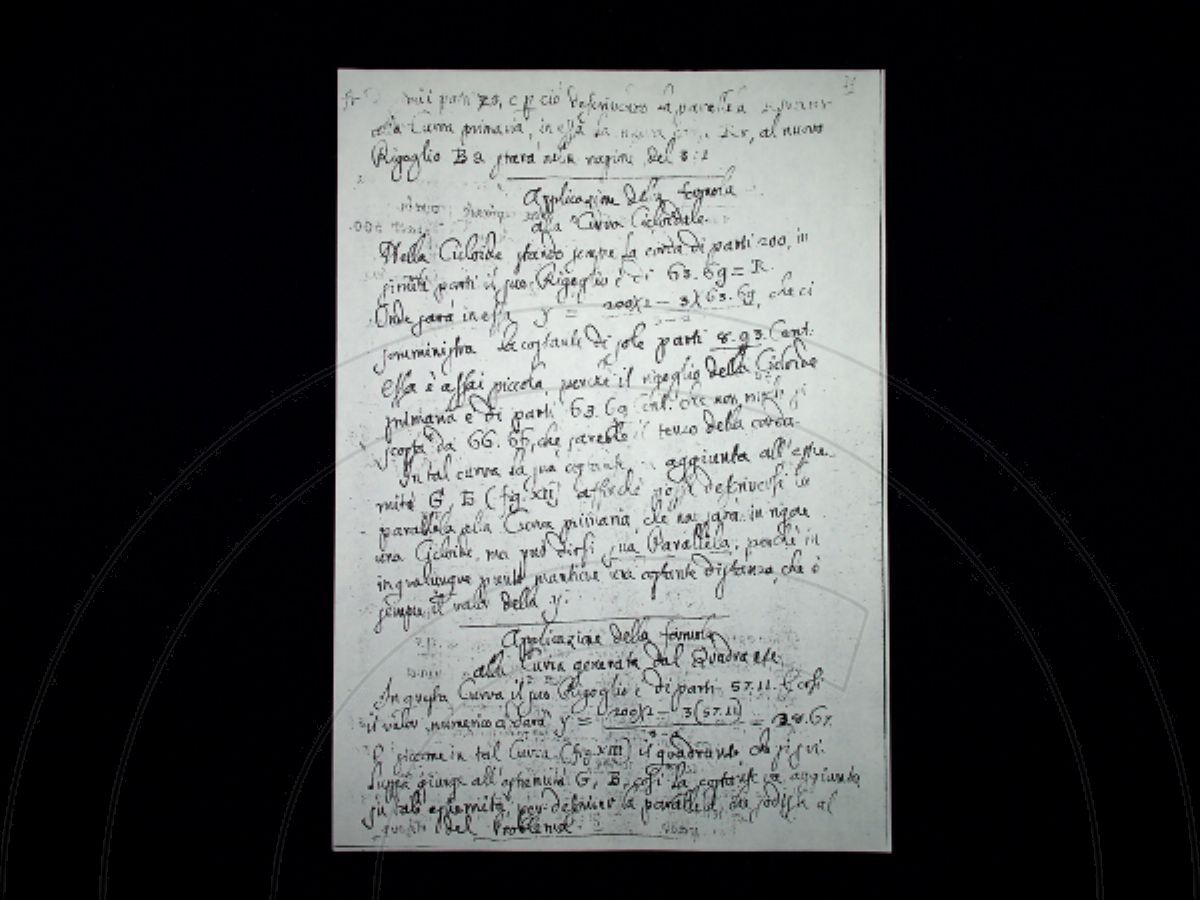 mii parti 23, e p ciò descrivendo la parallela
alla Curva primaria, in essa la nuova al nuovo
Rigoglio B a starà nella ragione del 3:2
Applicazione della formola
alla Curva Cicloidale.
Nella Cicloide stando sempre la corda di parti 200, in
simili parti il suo Rigoglio è di 63.69 = R.
Onde sarà in essa y = 200)(2 − 3)(63.69, che ci
somministra la costante di sole parti 8.93. Cent:
Essa è assai piccola, perchè il rigoglio della Cicloide
primaria è di parti 63.69 Cent. che non molto si
scosta da 66.66, che sarebbe il terzo della corda.
In tal curva la sua costante aggiunta all'estre-
mità G, B (fig. XII) affinchè possa descriversi la
parallela alla Curva primaria, che non sarà in rigore
una Cicloide, ma può dirsi sua Parallela, perchè in
in qualunque punto mantiene una costante distanza, che è
sempre il valor della y.
Applicazione della formola
alla Curva generata dal Quadrante
In questa Curva il suo Rigoglio è di parti 57.11. E così
il valor numerico ci darà y = 200)(2 − 3(57.11) = 28.67.
E siccome in tal Curva (fig. XIII) il quadrante, che si
giunge all'estremità G, B, così la costante va aggiunta
su tali estremità, per descriver la parallela, che sodisfa al
quesito del Problema